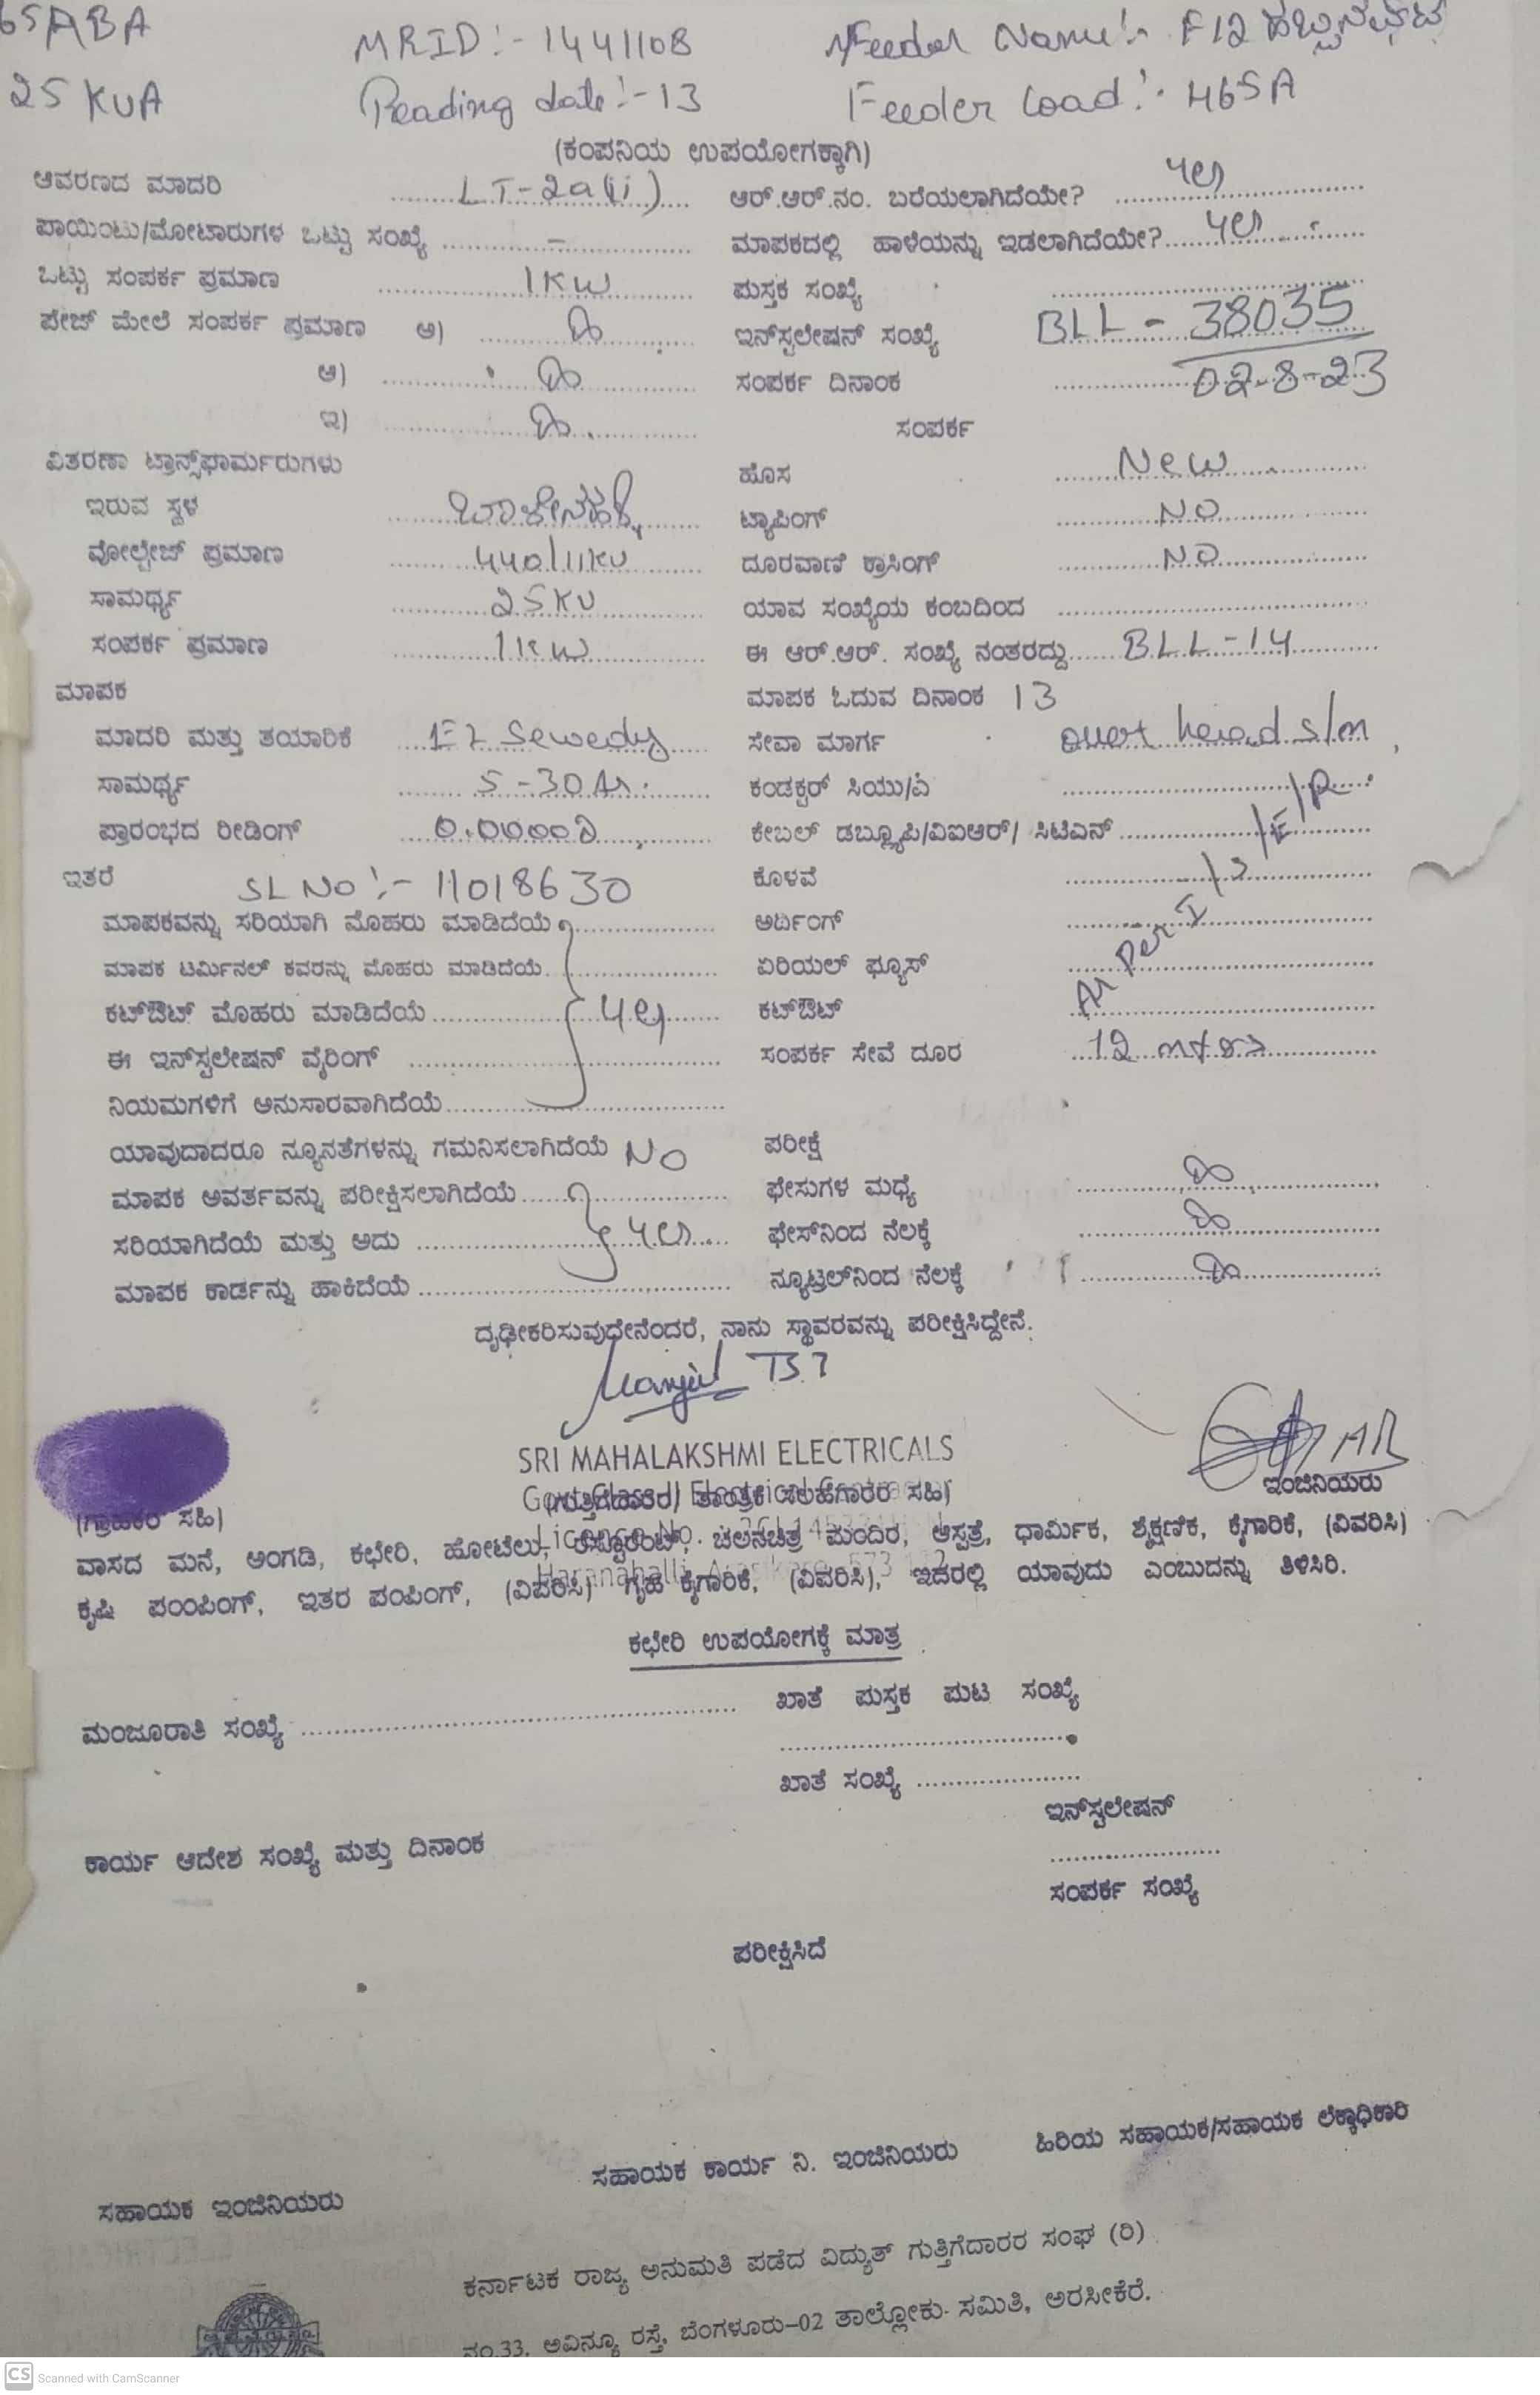 65ABA MRID :- 1441108 Feeder Name :- F12
25 KVA Reading date :- 13 Feeder Load :- 465A
(ಕಂಪನಿಯ ಉಪಯೋಗಕ್ಕಾಗಿ)
ಆವರಣದ ಮಾದರಿ LT-2a(ii) ಆರ್.ಆರ್.ನಂ. ಬರೆಯಲಾಗಿದೆಯೇ? yes
ಪಾಯಿಂಟು/ಮೋಟಾರುಗಳ ಒಟ್ಟು ಸಂಖ್ಯೆ - ಮಾಪಕದಲ್ಲಿ ಹಾಳೆಯನ್ನು ಇಡಲಾಗಿದೆಯೇ? yes
ಒಟ್ಟು ಸಂಪರ್ಕ ಪ್ರಮಾಣ 1KW ಪುಸ್ತಕ ಸಂಖ್ಯೆ
ಪೇಜ್ ಮೇಲೆ ಸಂಪರ್ಕ ಪ್ರಮಾಣ ಅ) ಇನ್‌ಸ್ಟಲೇಷನ್ ಸಂಖ್ಯೆ BLL - 38035
ಆ) ಸಂಪರ್ಕ ದಿನಾಂಕ 02-8-23
ಇ) ಸಂಪರ್ಕ
ವಿತರಣಾ ಟ್ರಾನ್ಸ್‌ಫಾರ್ಮರುಗಳು ಹೊಸ New
ಇರುವ ಸ್ಥಳ ಟ್ಯಾಪಿಂಗ್ NO
ವೋಲ್ಟೇಜ್ ಪ್ರಮಾಣ 440/11KV ದೂರವಾಣಿ ಕ್ರಾಸಿಂಗ್ NO
ಸಾಮರ್ಥ್ಯ 25KV ಯಾವ ಸಂಖ್ಯೆಯ ಕಂಬದಿಂದ
ಸಂಪರ್ಕ ಪ್ರಮಾಣ 1KW ಈ ಆರ್.ಆರ್. ಸಂಖ್ಯೆ ನಂತರದ್ದು BLL-14
ಮಾಪಕ ಮಾಪಕ ಓದುವ ದಿನಾಂಕ 13
ಮಾದರಿ ಮತ್ತು ತಯಾರಿಕೆ EL Sewedy ಸೇವಾ ಮಾರ್ಗ over head s/m
ಸಾಮರ್ಥ್ಯ 5-30 ಕಂಡಕ್ಟರ್ ಸಿಯು/ಎ
ಪ್ರಾರಂಭದ ರೀಡಿಂಗ್ ಕೇಬಲ್ ಡಬ್ಲ್ಯೂಪಿ/ವಿಐಆರ್/ ಸಿಟಿಎಸ್
ಇತರೆ SL No :- 11018630 ಕೊಳವೆ
ಮಾಪಕವನ್ನು ಸರಿಯಾಗಿ ಮೊಹರು ಮಾಡಿದೆಯೆ ಅರ್ಥಿಂಗ್
ಮಾಪಕ ಟರ್ಮಿನಲ್ ಕವರನ್ನು ಮೊಹರು ಮಾಡಿದೆಯೆ ಏರಿಯಲ್ ಫ್ಯೂಸ್
ಕಟ್‌ಔಟ್ ಮೊಹರು ಮಾಡಿದೆಯೆ yes ಕಟ್‌ಔಟ್
ಈ ಇನ್‌ಸ್ಟಲೇಷನ್ ವೈರಿಂಗ್ ಸಂಪರ್ಕ ಸೇವೆ ದೂರ 12
ನಿಯಮಗಳಿಗೆ ಅನುಸಾರವಾಗಿದೆಯೆ
ಯಾವುದಾದರೂ ನ್ಯೂನತೆಗಳನ್ನು ಗಮನಿಸಲಾಗಿದೆಯೆ NO ಪರೀಕ್ಷೆ
ಮಾಪಕ ಅವರ್ತವನ್ನು ಪರೀಕ್ಷಿಸಲಾಗಿದೆಯೆ ಫೇಸುಗಳ ಮಧ್ಯೆ
ಸರಿಯಾಗಿದೆಯೆ ಮತ್ತು ಅದು yes ಫೇಸ್‌ನಿಂದ ನೆಲಕ್ಕೆ
ಮಾಪಕ ಕಾರ್ಡನ್ನು ಹಾಕಿದೆಯೆ ನ್ಯೂಟ್ರಲ್‌ನಿಂದ ನೆಲಕ್ಕೆ
ದೃಢೀಕರಿಸುವುಧೇನೆಂದರೆ, ನಾನು ಸ್ಥಾವರವನ್ನು ಪರೀಕ್ಷಿಸಿದ್ದೇನೆ.
SRI MAHALAKSHMI ELECTRICALS
ಇಂಜಿನಿಯರು
(ಗ್ರಾಹಕರ ಸಹಿ) (ಗುತ್ತಿಗೆದಾರರ/ ತಾಂತ್ರಿಕ ಸಲಹೆಗಾರರ ಸಹಿ)
ವಾಸದ ಮನೆ, ಅಂಗಡಿ, ಕಛೇರಿ, ಹೋಟೆಲು, ರೆಸ್ಟೂರೆಂಟ್, ಚಲನಚಿತ್ರ ಮಂದಿರ, ಆಸ್ಪತ್ರೆ, ಧಾರ್ಮಿಕ, ಶೈಕ್ಷಣಿಕ, ಕೈಗಾರಿಕೆ, (ವಿವರಿಸಿ)
ಕೃಷಿ ಪಂಂಪಿಂಗ್, ಇತರ ಪಂಪಿಂಗ್, (ವಿವರಿಸಿ) ಗೃಹ ಕೈಗಾರಿಕೆ, (ವಿವರಿಸಿ), ಇದರಲ್ಲಿ ಯಾವುದು ಎಂಬುದನ್ನು ತಿಳಿಸಿರಿ.
ಕಛೇರಿ ಉಪಯೋಗಕ್ಕೆ ಮಾತ್ರ
ಮಂಜೂರಾತಿ ಸಂಖ್ಯೆ ಖಾತೆ ಪುಸ್ತಕ ಪುಟ ಸಂಖ್ಯೆ
ಖಾತೆ ಸಂಖ್ಯೆ
ಇನ್‌ಸ್ಟಲೇಷನ್
ಕಾರ್ಯ ಆದೇಶ ಸಂಖ್ಯೆ ಮತ್ತು ದಿನಾಂಕ
ಸಂಪರ್ಕ ಸಂಖ್ಯೆ
ಪರೀಕ್ಷಿಸಿದೆ
ಸಹಾಯಕ ಇಂಜಿನಿಯರು ಸಹಾಯಕ ಕಾರ್ಯ ನಿ. ಇಂಜಿನಿಯರು ಹಿರಿಯ ಸಹಾಯಕ/ಸಹಾಯಕ ಲೆಕ್ಕಾಧಿಕಾರಿ
ಕರ್ನಾಟಕ ರಾಜ್ಯ ಅನುಮತಿ ಪಡೆದ ವಿದ್ಯುತ್ ಗುತ್ತಿಗೆದಾರರ ಸಂಘ (ರಿ)
ನಂ.33, ಅವಿನ್ಯೂ ರಸ್ತೆ, ಬೆಂಗಳೂರು-02 ತಾಲ್ಲೋಕು ಸಮಿತಿ, ಅರಸೀಕೆರೆ.
CS Scanned with CamScanner